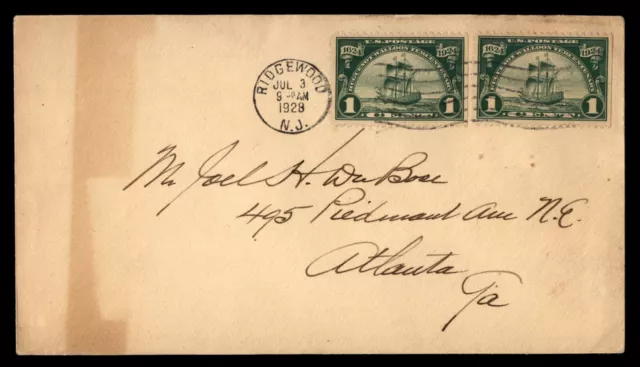 RIDGEWOOD
JUL 3
9 AM
1928
N.J.
U.S. POSTAGE
1624 1924
HUGUENOT WALLOON TERCENTENARY
1 CENT 1
U.S. POSTAGE
1624 1924
HUGUENOT WALLOON TERCENTENARY
1 CENT 1
Mr Joel H. DuBose
495 Piedmont Ave N.E.
Atlanta
Ga